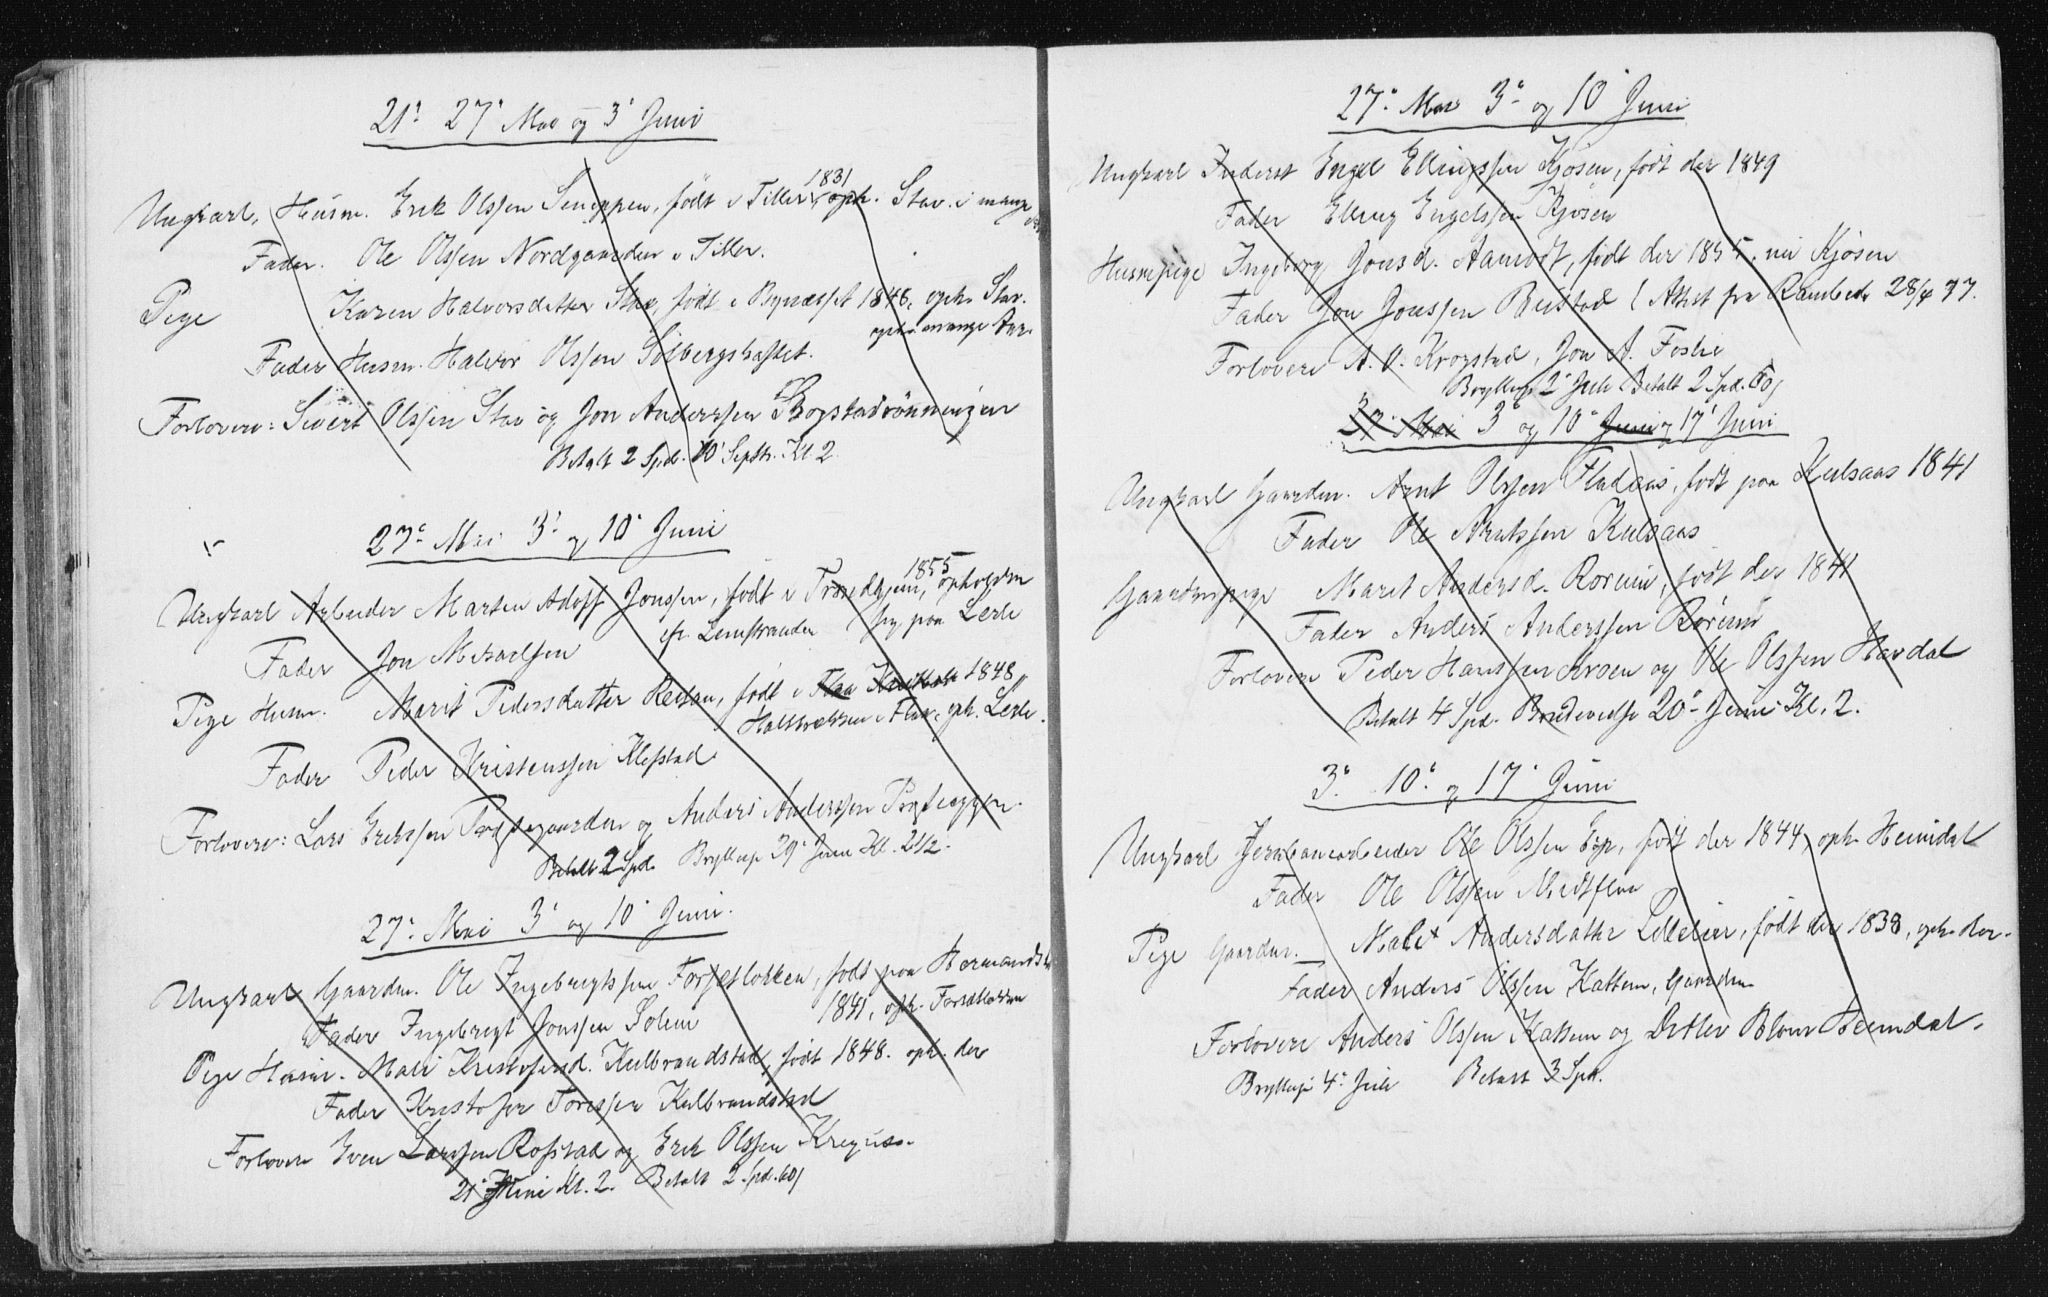 21' 27' Mai og 3' Juni
Ungkarl, Husm. Erik Olssen Sneppen, født i Tiller 1831, oph. Stav. i mange
Fader. Ole Olssen Nordgaarden i Tiller.
Pige Karen Halvorsdatter Stav, født i Bynæsset 1848, oph. Stav.
oph. mange Aar.
Fader Husm. Halvor Olssen Solbergshaftet.
Forlovere: Sivert Olssen Stav og Jon Anderssen Bogstadrønningen
Betalt 2 Spd. 10' Septr. Kl 2
27' Mai 3' og 10' Juni
Ungkarl Arbeider Morten Adolf Jonssen, født i Trondhjem, 1855, opholder
sig paa Lerli
Fader Jon
Pige Husm. Marit Pedersdatter, født i Flaa 1848
i Flaa, oph. Lerli.
Fader Peder Kristenssen Klefstad
Forlovere: Lars Erikssen og Anders Anderssen
Betalt 2 Spd. Bryllup 29' Juni Kl. 2 1/2.
27' Mai 3' og 10' Juni.
Ungkarl Gaardm. Ole Ingebrigtssen Forsetløkken, født paa
1841, oph. Forsetløkken
Fader Ingebrigt Jonssen Solem
Pige Husm. Mali Kristofersd. Kulbrandstad, født 1848. oph. der
Fader Kristofer Toressen Kulbrandstad
Forlovere Even Larssen Rofstad og Erik Olssen
21' Juni Kl. 2. Betalt 2 Spd. 60 s
27' Mai 3' og 10' Juni
Ungkarl Inderst Engel Ellingssen Kjøsen, født der 1849
Fader Elling Engelssen Kjøsen
Husmpige Ingeborg Jonsd. Aamodt, født der 1855, nu Kjøsen
Fader Jon Jonssen (Attest fra 28/4 77.
Forlovere A. O. Krogstad, Jon A. Foslie
Bryllup 2' Juli Betalt 2 Spd. 60 s
27' Mai 3' og 10' Juni og 17' Juni
Ungkarl Gaardm. Arnt Olssen Fladaas, født paa Kulsaas 1841
Fader Ole Arntssen Kulsaas
Gaardmspige Marit Andersd. Rønum, født der 1841
Fader Anders Anderssen
Forlovere Peder Hanssen Kroen og Ole Olssen Havdal
Betalt 4 Spd. Brudevielse 20' Juni Kl. 2.
3' 10' og 17' Juni
Ungkarl Jernbanearbeider Ole Olssen Eggen, født der 1844, oph. Heimdal
Fader Ole Olssen
Pige Gaardm. Malet Andersdatter, født der 1838, oph. der.
Fader Anders Olssen Kattem, Gaardm.
Forlovere Anders Olssen Kattem og Ditlev Blom Heimdal.
Bryllup 4' Juli Betalt 3 Spd.